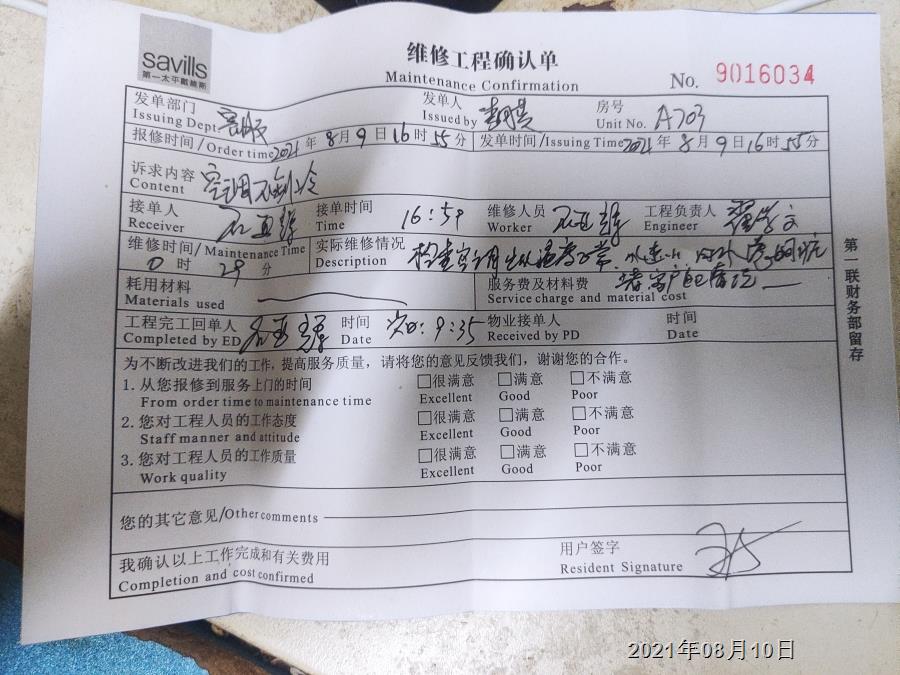 savills
第一太平戴维斯
维修工程确认单
Maintenance Confirmation
No. 9016034
发单部门
Issuing Dept. 客服
发单人
Issued by
房号
Unit No. A703
报修时间/Order time 2021年8月9日16时55分
发单时间/Issuing Time 2021年8月9日16时55分
诉求内容
Content 空调不制冷
接单人
Receiver 石亚辉
接单时间
Time 16:59
维修人员
Worker 石亚辉
工程负责人
Engineer
维修时间/Maintenance Time
0时29分
实际维修情况
Description 检查空调
耗用材料
Materials used
服务费及材料费
Service charge and material cost
工程完工回单人
Completed by ED 石亚辉
时间
Date 9:35
物业接单人
Received by PD
时间
Date
为不断改进我们的工作,提高服务质量,请将您的意见反馈我们,谢谢您的合作。
1. 从您报修到服务上门的时间 □很满意 □满意 □不满意
From order time to maintenance time Excellent Good Poor
2. 您对工程人员的工作态度 □很满意 □满意 □不满意
Staff manner and attitude Excellent Good Poor
3. 您对工程人员的工作质量 □很满意 □满意 □不满意
Work quality Excellent Good Poor
您的其它意见/Other comments
我确认以上工作完成和有关费用
Completion and cost confirmed
用户签字
Resident Signature
第一联财务部留存
2021年08月10日